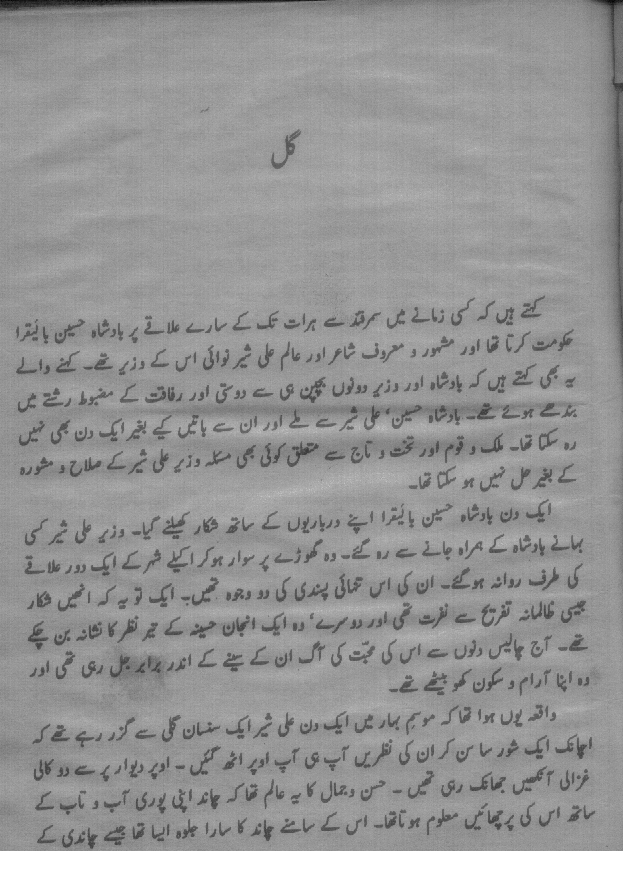 گل
کہتے ہیں کہ کسی زمانے میں سمرقند سے ہرات تک کے سارے علاقے پر بادشاہ حسین بائیقرا
حکومت کرتا تھا اور مشہور و معروف شاعر اور عالم علی شیر نوائی اس کے وزیر تھے۔ کہنے والے
یہ بھی کہتے ہیں کہ بادشاہ اور وزیر دونوں بچپن ہی سے دوستی اور رفاقت کے مضبوط رشتے میں
بندھے ہوئے تھے۔ بادشاہ حسین، علی شیر سے ملے اور ان سے باتیں کیے بغیر ایک دن بھی نہیں
رہ سکتا تھا۔ ملک و قوم اور تخت و تاج سے متعلق کوئی بھی مسئلہ وزیر علی شیر کے صلاح و مشورہ
کے بغیر حل نہیں ہو سکتا تھا۔
ایک دن بادشاہ حسین بائیقرا اپنے درباریوں کے ساتھ شکار کھیلنے گیا۔ وزیر علی شیر کسی
بہانے بادشاہ کے ہمراہ جانے سے رہ گئے۔ وہ گھوڑے پر سوار ہوکر اکیلے شہر کے ایک دور علاقے
کی طرف روانہ ہوگئے۔ ان کی اس تنہائی پسندی کی دو وجوہ تھیں۔ ایک تو یہ کہ انھیں شکار
جیسی ظالمانہ تفریح سے نفرت تھی اور دوسرے، وہ ایک انجان حسینہ کے تیر نظر کا نشانہ بن چکے
تھے۔ آج چالیس دنوں سے اس کی محبّت کی آگ ان کے سینے کے اندر برابر جل رہی تھی اور
وہ اپنا آرام و سکون کھو بیٹھے تھے۔
واقعہ یوں ہوا تھا کہ موسمِ بہار میں ایک دن علی شیر ایک سنسان گلی سے گزر رہے تھے کہ
اچانک ایک شور سا سن کر ان کی نظریں آپ ہی آپ اوپر اٹھ گئیں۔ اوپر دیوار پر سے دو کالی
غزالی آنکھیں جھانک رہی تھیں۔ حسن و جمال کا یہ عالم تھا کہ چاند اپنی پوری آب و تاب کے
ساتھ اس کی پرچھائیں معلوم ہوتا تھا۔ اس کے سامنے چاند کا سارا جلوہ ایسا تھا جیسے چاندی کے